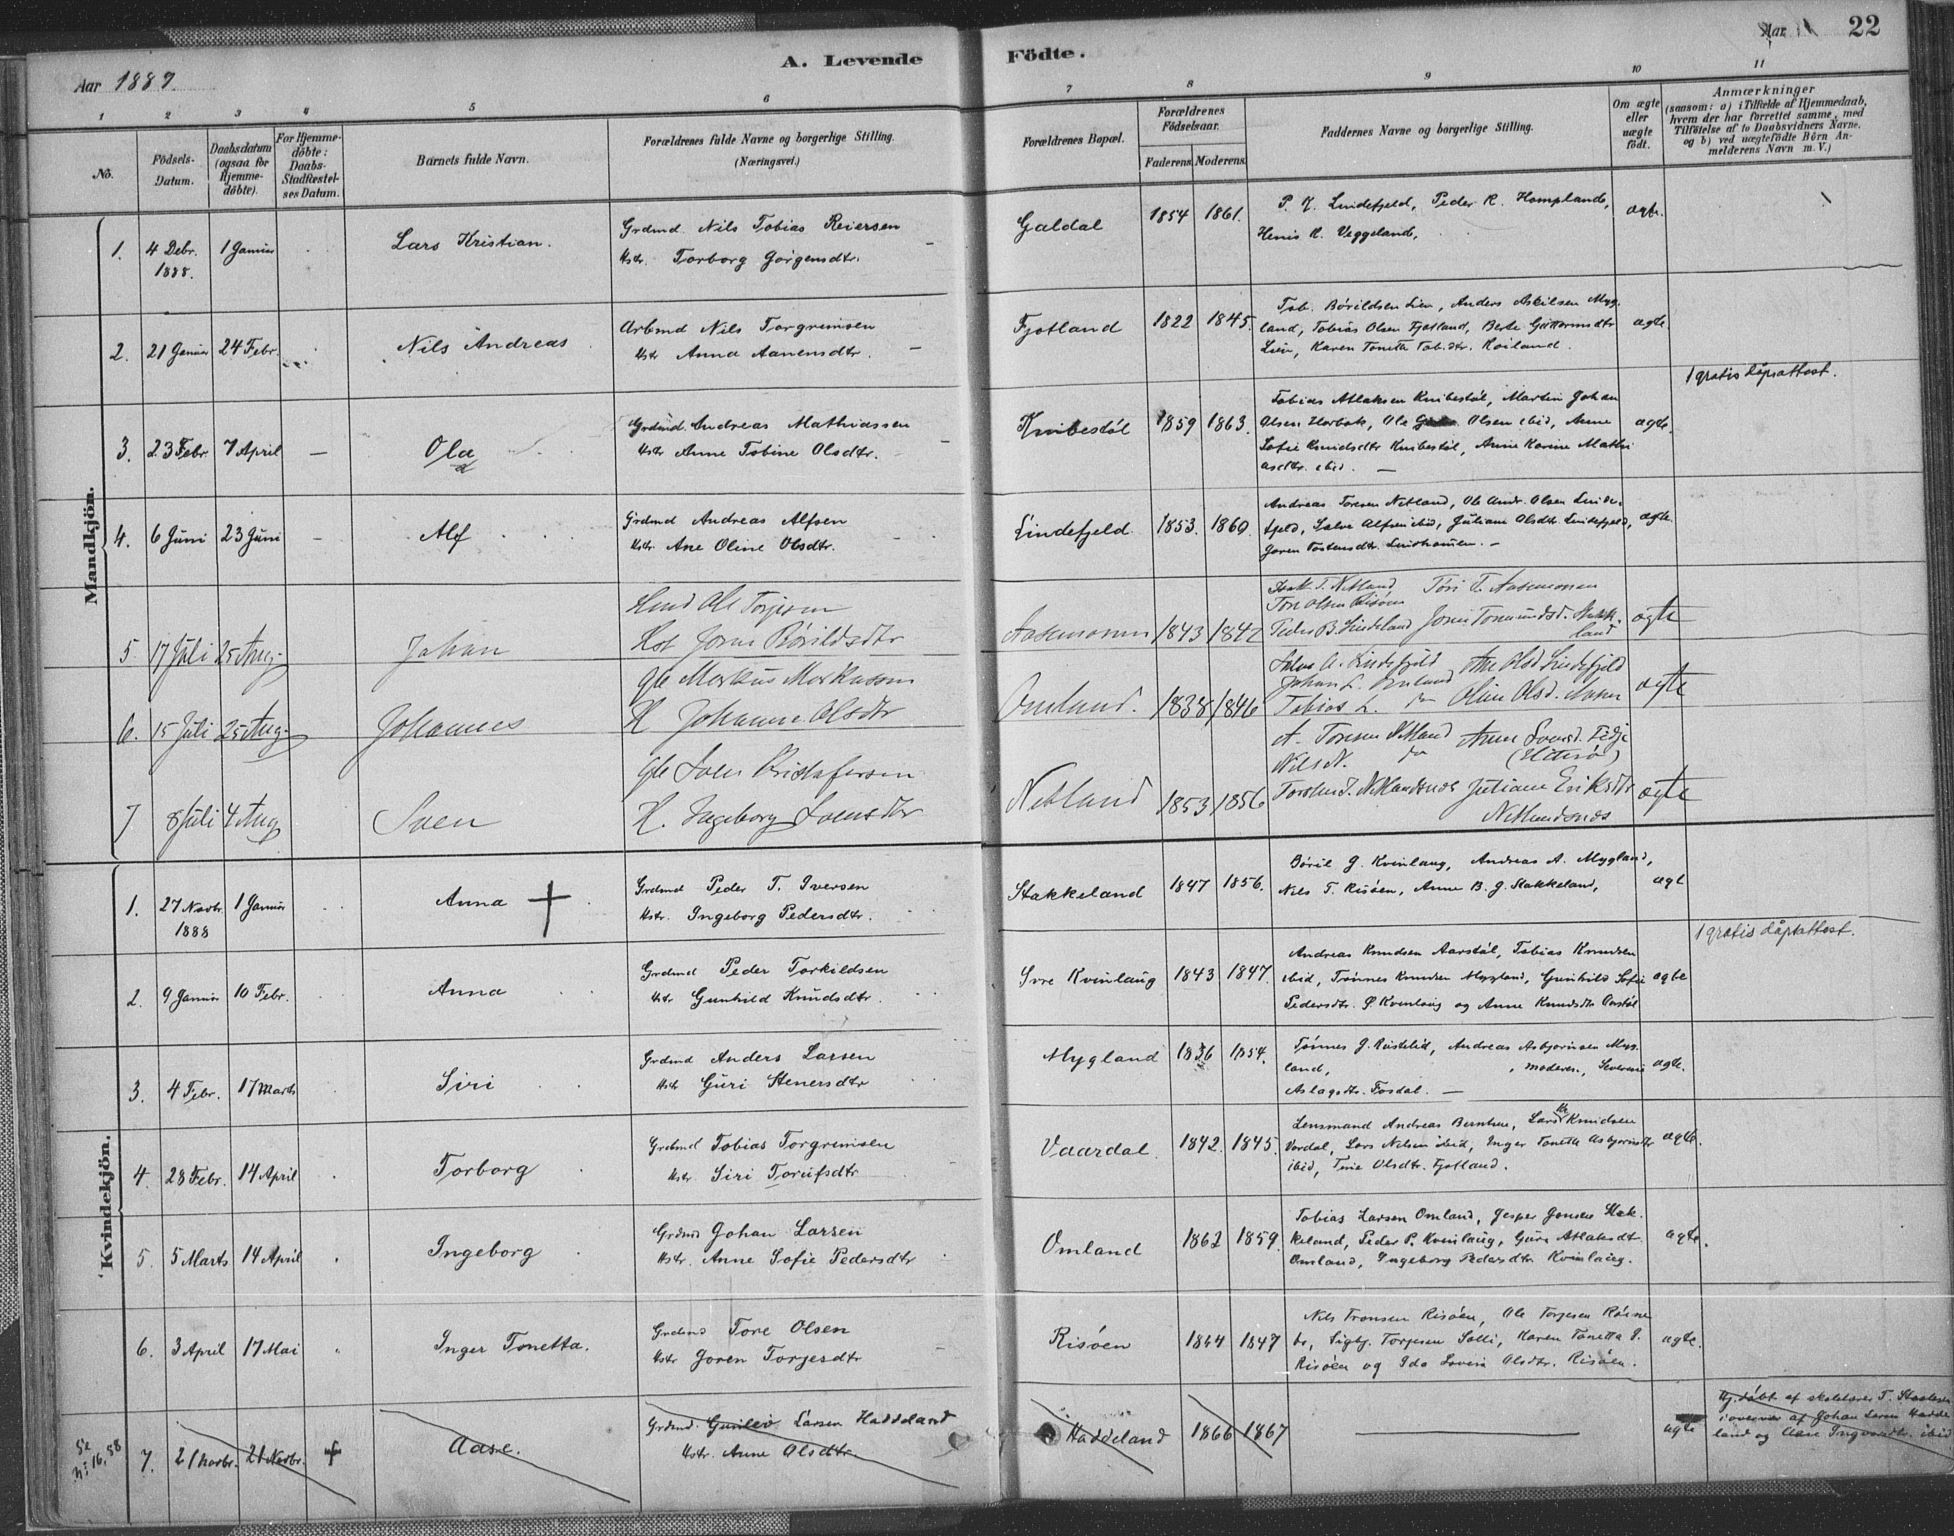 Aar 1889.
A. Levende Födte.
Aar 22
1 2 3 4 5 6 7 8 9 10 11
No.
Födsels-Datum.
Daabsdatum (ogsaa for Hjemme-döbte).
For Hjemme-döbte: Daabs-Stadfæstel-ses Datum.
Barnets fulde Navn.
Forældrenes fulde Navne og borgerlige Stilling.
(Næringsvei.)
Forældrenes Bopæl.
Forældrenes Födselsaar.
Faderens. Moderens.
Faddernes Navne og borgerlige Stilling.
Om ægte eller uægte födt.
Anmærkninger
(saasom: a) i Tilfælde af Hjemmedaab,
hvem der har forrettet samme, med
Tilföielse af to Daabsvidners Navne,
og b) ved uægtefödte Börn An-
melderens Navn m. V.)
Mandkjön.
1. 4 Debr. 1888. 1 Januar Lars Kristian. Grdmd Nils Tobias Reiersen
Kstr. Torborg Jörgensdtr.
Galdal 1854 1861. P. K. Lindefjeld, Peder R. Hompland,
Henis K. Veggeland, ægte.
2. 21 Januar 24 Febr. Nils Andreas Arbmd Nils Torgrimsen
Kstr Anna Aanensdtr.
Fjotland 1822 1845. Tob. Börildsen Lien, Anders Askilsen Myg-
land, Tobias Olsen Fjotland, Berte Guttormsdtr
Lien, Karen Tonetta Tob.dtr. Roiland. ægte
1 gratis dåpsattest.
3. 23 Febr. 7 April Ola Grdmd Andreas Mathiassen
Kstr Anne Tobine Olsdtr.
Knibestöl 1859 1863. Tobias Atlaksen Knibestöl, Martin Johan
Olsen ibid, Anne
Sofie Knudsdtr Knibestöl, Anne Karine Mathi
asdtr. ibid. ægte.
4. 6 Juni 23 Juni Alf Grdmd Andreas Alfsen
Kstr. Ane Oline Olsdtr.
Lindefjeld 1853. 1860. Andreas Toresen Netland, Ole Andr. Olsen Linde-
fjeld, Salve Alfsen ibid, Juliane Olsdtr. Lindefjeld,
Joren Tostensdtr. ægte.
5. 17 Juli 25 Aug. Johan Ole Torjesen
Kst Joren Börildsdtr
Aasemoen 1843 1842 Isak T. Netland Töri T. Aasemoen
Tore Olsen Risöen
Peder B. Lindeland Joren Tormundsd. Stakk-
land ægte
6. 15 Juli 25 Aug. Johannes Gbr Markus Markussen
K Johanne Olsdtr
Omland. 1838 1846 Salve A. Lindefjeld Ane Olsd. Lindefjeld
Johan L. Omland
Tobias L. do Oline Olsd. ægte
7 8 Juli 4 Aug Sven Gbr Sven Kristofersen
K. Ingeborg Svensdtr
Netland 1853 1856 A. Toresen Netland Anne Svensd. Fedje
Nils N. do (Hitterø)
Torsten T. Netlandsnes Juliane Eriksdtr
Netlandsnes ægte
Kvindekjön.
1. 27 Novbr. 1888 1 Januar Anna Grdmd Peder T. Iversen
Kstr. Ingeborg Pedersdtr.
Stakkeland 1847 1856. Böril G. Kvinlaug, Andreas A. Mygland,
Nils T. Risöen, Anne B. J. Stakkeland, ægt
1 gratis dåpsattest.
2. 9 Januar 10 Febr. Anna Grdmd Peder Torkildsen
Kstr Gunhild Knudsdtr
Övre Kvinlaug 1843 1847. Andreas Knudsen Aarstöl, Tobias Knudsen
ibid, Tönnes Knudsen Mygland, Gunhild Sofie
Pedersdtr. Ö Kvinlaug og Anne Knudsdtr Aarstöl ægte
3. 4 Febr. 17 Marts Siri Grdmd Anders Larsen
Kstr Guri Stenersdtr
Mygland 1836 1854. Tönnes G. Röstelid, Andreas Asbjornsen Myg-
land, , moderen, Severine
Aslagsdtr. Fosdal. ægte.
4. 28 Febr. 14 April Torborg Grdmd Tobias Torgrimsen
Kstr. Siri Torufsdtr
Vaardal. 1842. 1845. Lensmand Andreas Berntsen, Lars Knudsen
Vordal, Lars Nilsen ibid, Inger Tonetta Asbjornsdtr
ibid, Trine Olsdtr. Fjotland. ægte.
5. 5 Marts 14 April Ingeborg Grdmd Johan Larsen
Kstr. Anne Sofie Pedersdtr
Omland 1862 1859. Tobias Larsen Omland, Jesper Jonsen Stak-
keland, Peder P. Kvinlaug, Guri Atlaksdtr.
Omland, Ingeborg Pedersdtr Kvinlaug. ægte.
6. 3 April 17 Mai Inger Tonetta. Grdmd Tore Olsen
Kstr Joren Torjesdtr
Risöen 1844 1847 Nils Tronsen Risöen, Ole Torjesen
Sigbj. Torjesen Solli, Karen Tonetta T.
Risöen og Ida Lovise Olsdtr. Risöen. ægte.
Se No 16, 88
7. 21 Novbr. 21 Novbr. + Aase. Grdmd. Gunlev Larsen Haddeland
Kstr. Anne Olsdtr
Haddeland 1866 1867 ægte
Hj. döbt af skolelærer T.
i overvær af Johan Larsen Hadde
land og Aase Ingvaldtr. ibid